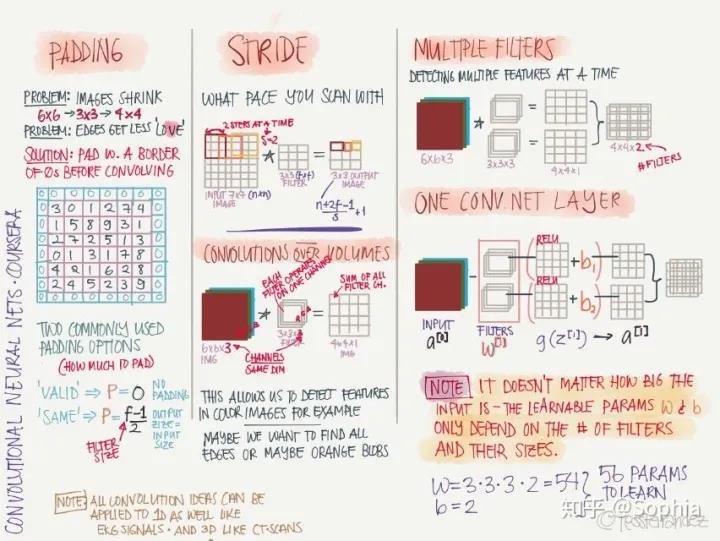 CONVOLUTIONAL NEURAL NETS · COURSERA
PADDING
PROBLEM: IMAGES SHRINK
6x6 → 3x3 → 4x4
PROBLEM: EDGES GET LESS 'LOVE'
SOLUTION: PAD W. A BORDER
OF 0s BEFORE CONVOLVING
0 0 0 0 0 0 0 0
0 3 0 1 2 7 4 0
0 1 5 8 9 3 1 0
0 2 7 2 5 1 3 0
0 0 1 3 1 7 8 0
0 4 2 1 6 2 8 0
0 2 4 5 2 3 9 0
0 0 0 0 0 0 0 0
TWO COMMONLY USED
PADDING OPTIONS
(HOW MUCH TO PAD)
'VALID' ⇒ P = 0 NO PADDING
'SAME' ⇒ P = f-1/2 OUTPUT SIZE = INPUT SIZE
FILTER
SIZE
STRIDE
WHAT PACE YOU SCAN WITH
2 STEPS AT A TIME
s=2
* =
INPUT 7x7 (nxn)
IMAGE
3x3 (fxf)
FILTER
3x3 OUTPUT
IMAGE
n+2f-1/s + 1
CONVOLUTIONS OVER VOLUMES
EACH
FILTER OPERATES
ON ONE CHANNEL
SUM OF ALL
FILTER CH.
* =
6x6x3
IMG
3x3x3
FILTER
4x4x1
IMG
CHANNELS
SAME DIM
THIS ALLOWS US TO DETECT FEATURES
IN COLOR IMAGES FOR EXAMPLE
MAYBE WE WANT TO FIND ALL
EDGES OR MAYBE ORANGE BLOBS
NOTE: ALL CONVOLUTION IDEAS CAN BE
APPLIED TO 1D AS WELL LIKE
EKG SIGNALS · AND 3D LIKE CT-SCANS
MULTIPLE FILTERS
DETECTING MULTIPLE FEATURES AT A TIME
* = =
6x6x3
3x3x3
4x4x1
4x4x2
# FILTERS
ONE CONV. NET LAYER
RELU
( + b1 )
RELU
( + b2 )
INPUT
a[0]
FILTERS
W[1]
g(z[1]) → a[1]
NOTE IT DOESN'T MATTER HOW BIG THE
INPUT IS - THE LEARNABLE PARAMS W & b
ONLY DEPEND ON THE # OF FILTERS
AND THEIR SIZES.
W = 3·3·3·2 = 54 } 56 PARAMS
b = 2 TO LEARN
知乎 @Sophia